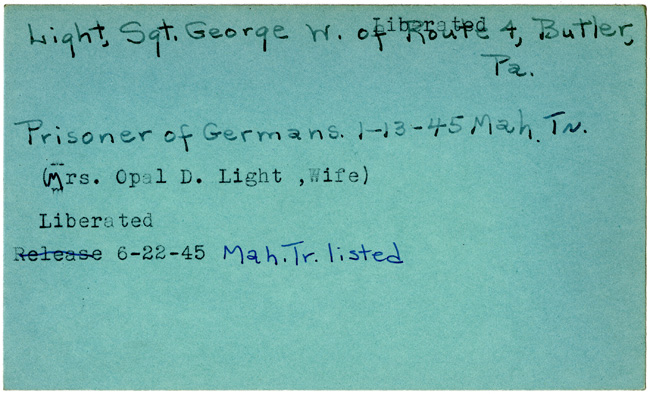 Liberated
Light, Sgt. George W. of Route 4, Butler,
Pa.
Prisoner of Germans. 1-13-45 Mah. Tr.
(Mrs. Opal D. Light ,Wife)
Liberated
Release 6-22-45 Mah. Tr. listed